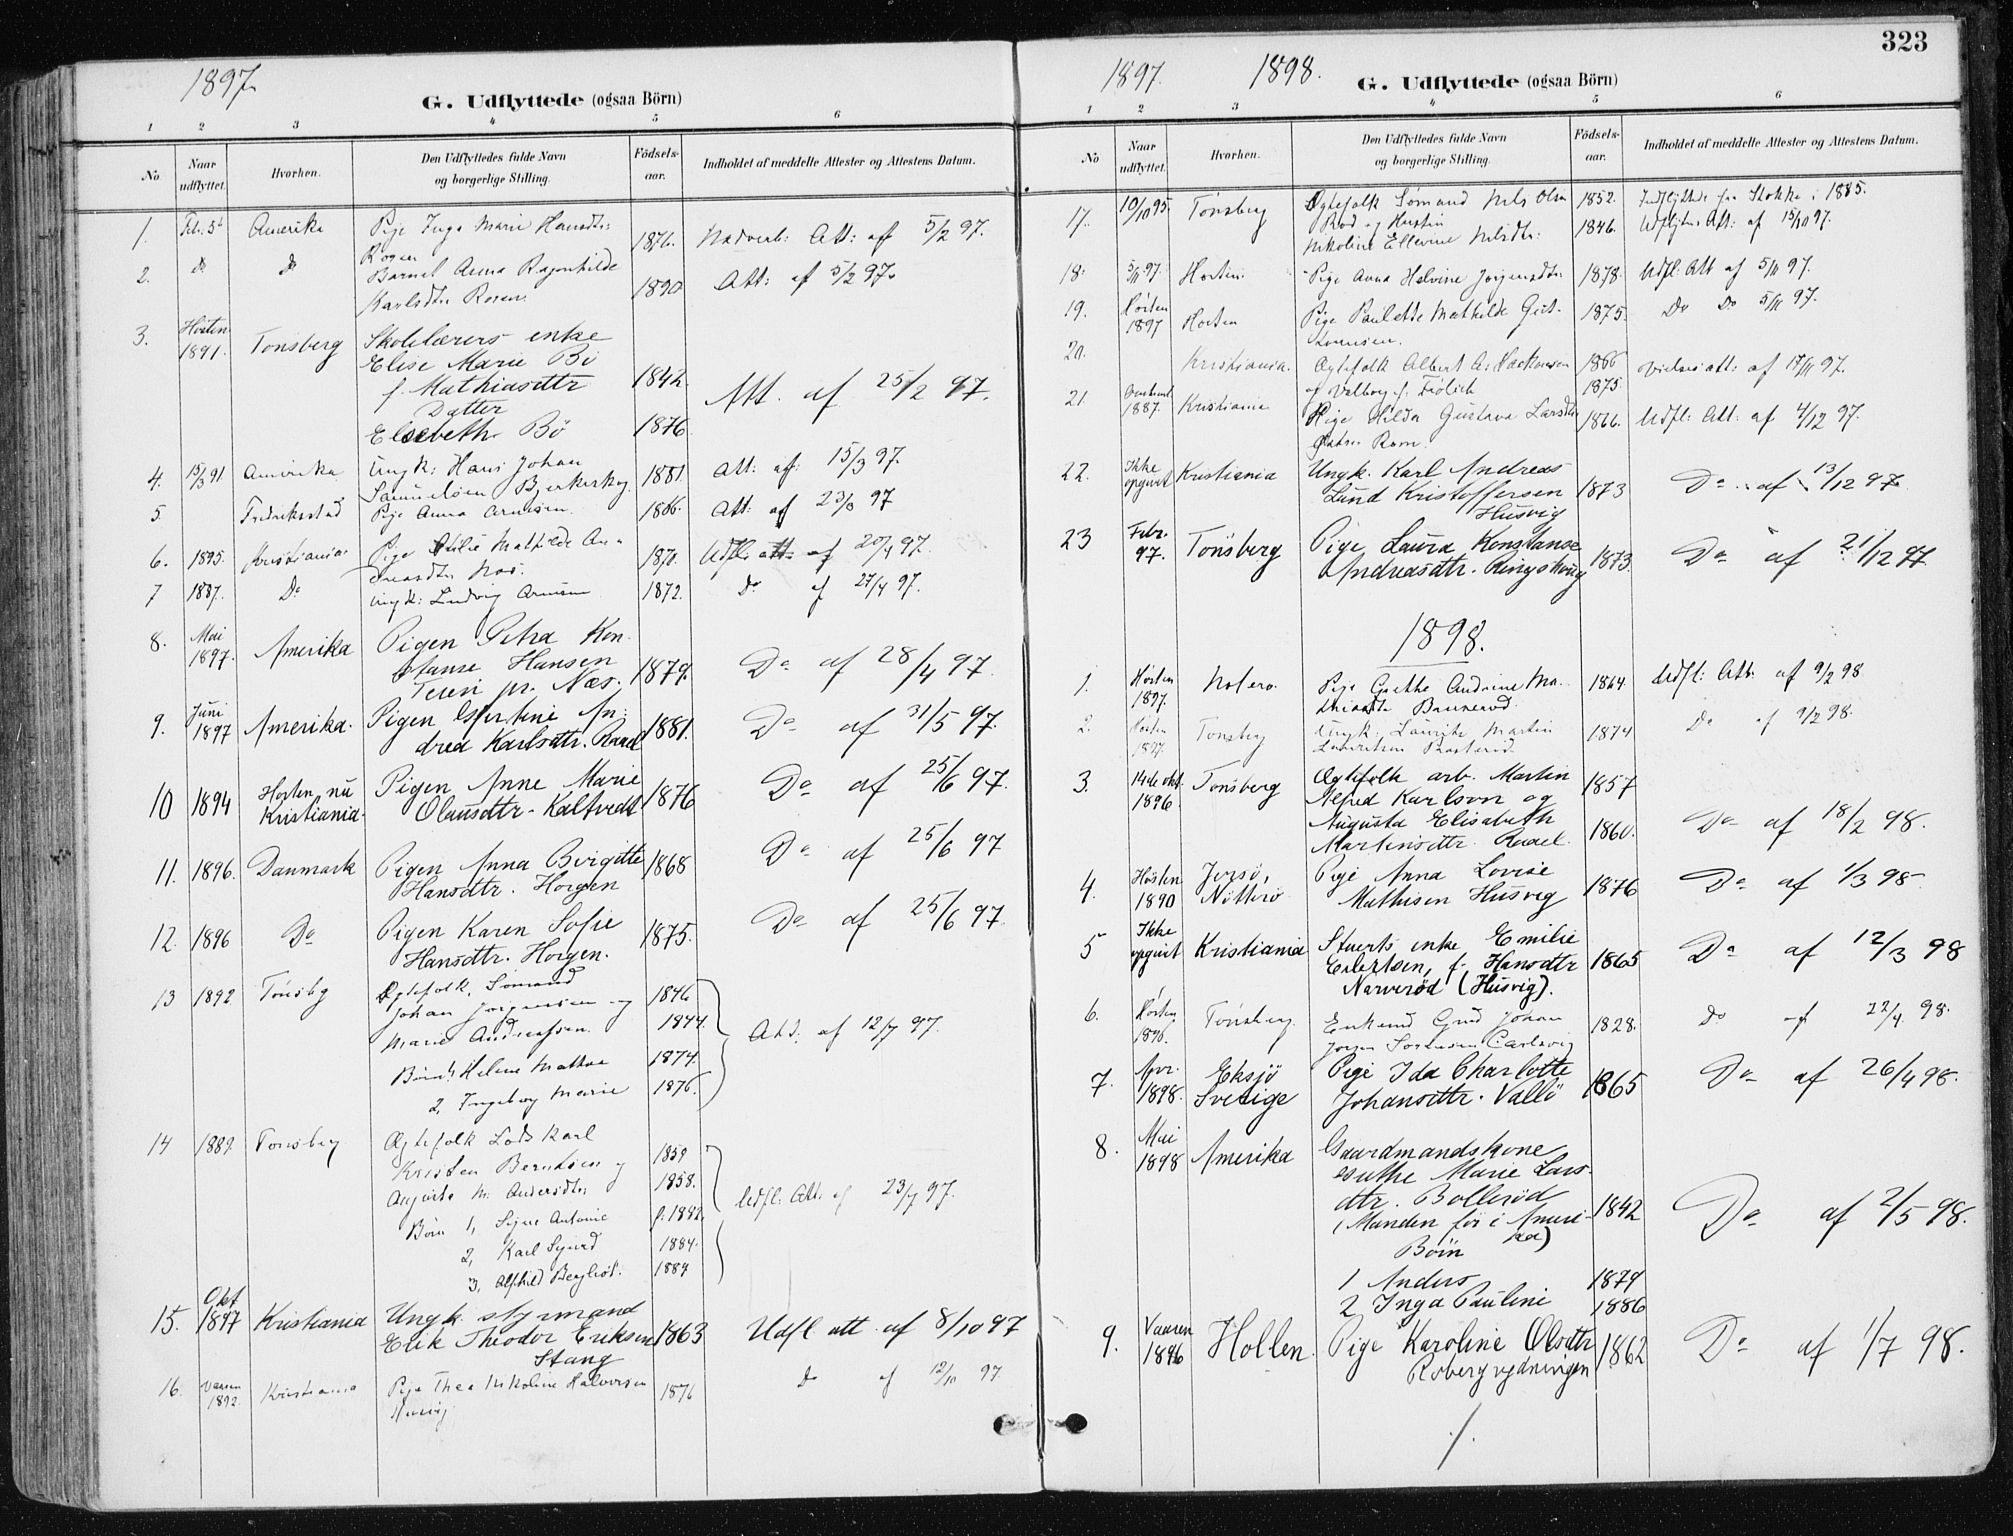 1897
G. Udflyttede (ogsaa Börn)
1 2 3 4 5 6
No
Naar udflyttet.
Hvorhen.
Den Udflyttedes fulde Navn og borgerlige Stilling.
Födsels-aar.
Indholdet af meddelte Attester og Attestens Datum.
1. Amerika Pige Inga Marie Hansdtr:
Rosen 1876. Att: af 5/2 97.
2. do do Barnet Anna Ragnhilde
Karlsdtr Rosen 1890 Att: af 5/2 97.
3. Hösten 1891. Tönsberg Skolelærers enke
Elise Marie Bö
f. Mathiasdtr 1842
Datter
Elsebeth Bö 1876. Att. af 25/2 97.
4. 15/3 91. Amerika Ungk: Hans Johan
Samuelsen Bjerkeskog 1881. Att: af 15/3 97.
5. Fredrikstad Pige Anna Arnesen 1866. Att: af 97
6. 1895. Kristiania Pige Mathilde An-
dreasdtr Næs. 1870. Udfl. att af 20/4 97.
7 1887. Do Ungk: Ludvig Arnesen 1872. Do af 27/4 97.
8. Mai 1897. Amerika Pigen Petra Kon-
stanse Hansen
pr. Næs. 1879. Do af 28/4 97.
9. Juni 1897 Amerika. Pigen An-
drea Karlsdtr. Raael 1881. Do af 31/5 97.
10 1894 Horten, nu Kristiania. Pigen Anne Marie
Olausdtr. Kaltvedt 1876 Do af 25/6 97.
11. 1896. Danmark Pigen Anna Birgitte
Hansdtr. Horgen 1868 Do af 25/6 97
12. 1896 Do Pigen Karen Sofie
Hansdtr. Horgen. 1875. Do af 25/6 97.
13 1892 Tönsbg Ægtefolk, Sömand
Johan Jörgensen og 1846
Marie Andreassen. 1844.
Börn: 1, Helene Mathea 1874.
2, Ingeborg Marie 1876. Att. af 12/7 97.
14 1889. Tönsberg Ægtefolk Lods Karl
Kristen Berntsen og 1859
Augusta M. Andersdtr 1858.
Börn 1, Signe Antonie f. 1882.
2, Karl Sigurd 1884.
3, Alfhild Bergliot. 1889 Udfl: Att: af 23/7 97.
15. Okt 1897 Kristiania Ungk. styrmand
Erik Theodor Eriksen 1863
Stang Udfl att. af 8/10 97
16. Vaaren 1892. Kristiania Pige Thea Nikoline Halvorsen 1876
Husvig Do af 12/10 97.
323
1897. 1898.
G. Udflyttede (ogsaa Börn)
1 2 3 4 5 6
No
Naar udflyttet.
Hvorhen.
Den Udflyttedes fulde Navn og borgerlige Stilling.
Födsels-aar.
Indholdet af meddelte Attester og Attestens Datum.
17. 10/10 95. Tönsberg Ægtefolk Sömand Nils Olsen 1852. Indflyttede fra Stokke i 1885.
Rod og Hustru
Nikoline Ellevine Nilsdtr: 1846. Udflytn. Att: af 15/10 97.
18. 5/11 97. Horten. Pige Anna Helvine Jörgensdtr 1878. Udfl: Att af 5/11 97.
19. Hösten 1897 Horten Pige Paulette Mathilde Gut-
tormsen. 1875. Do Do 5/11 97.
20. Kristiania. Ægtefolk Albert A. 1866
og Valborg f. Frölich 1875. af 17/11 97.
21. 1887. Kristiania Pige Hilda Gustava Larsdtr 1866. Udfl: Att: af 4/12 97.
22. Ikke opgivet Kristiania Ungk. Karl Andreas
Lund Kristoffersen 1873
Husvig Do af 13/12 97.
23 Febr. 97. Tönsberg Pige Laura Konstanse
Andreasdtr. Ringshoug 1873. Do af 21/12 97.
1898.
1. Hösten 1897. Noterö. Pige Grethe Andrine Ma-
thisdtr 1864. Udfl: Att: af 9/2 98
2. Hösten 1897. Tönsberg Ungk: Laurits Martin
Lauritsen 1874 Do af 9/2 98.
3. 14de okt. 1896. Tönsberg Ægtefolk arb. Martin 1857
Alfred Karlson og
Augusta Elisabeth
Martinsdtr. Raael. 1860. Do af 18/2 98.
4. Hösten 1890 Jersö, Nötterö Pige Anna Lovise
Mathisen Husvig 1876 Do af 1/3 98.
5 Ikke opgivet Kristiania Stuerts enke Emilie
Eilertsen, f. Hansdtr 1865
Narveröd (Husvig). Do af 12/3 98
6. Hösten 1896. Tönsberg Enkemd Johan
Jörgen Sörensen Carlsvig 1828. Do af 22/4 98.
7. Apr. 1898. Eksjö Sverige Pige Ida Charlotte
Johansdtr. Vallö 1865 Do af 26/4 98.
8. Mai 1898 Amerika Gaardmandskone
Marie Lars-
dtr. Bolleröd 1842
(Manden för i Ameri-
ka)
Börn
1 Anders 1879
2 Inga Pauline 1886 Do af 2/5 98.
9. Vaaren 1896 Hollen. Pige Karoline Olsdtr
Roberg rydningen 1862 Do af 1/7 98.